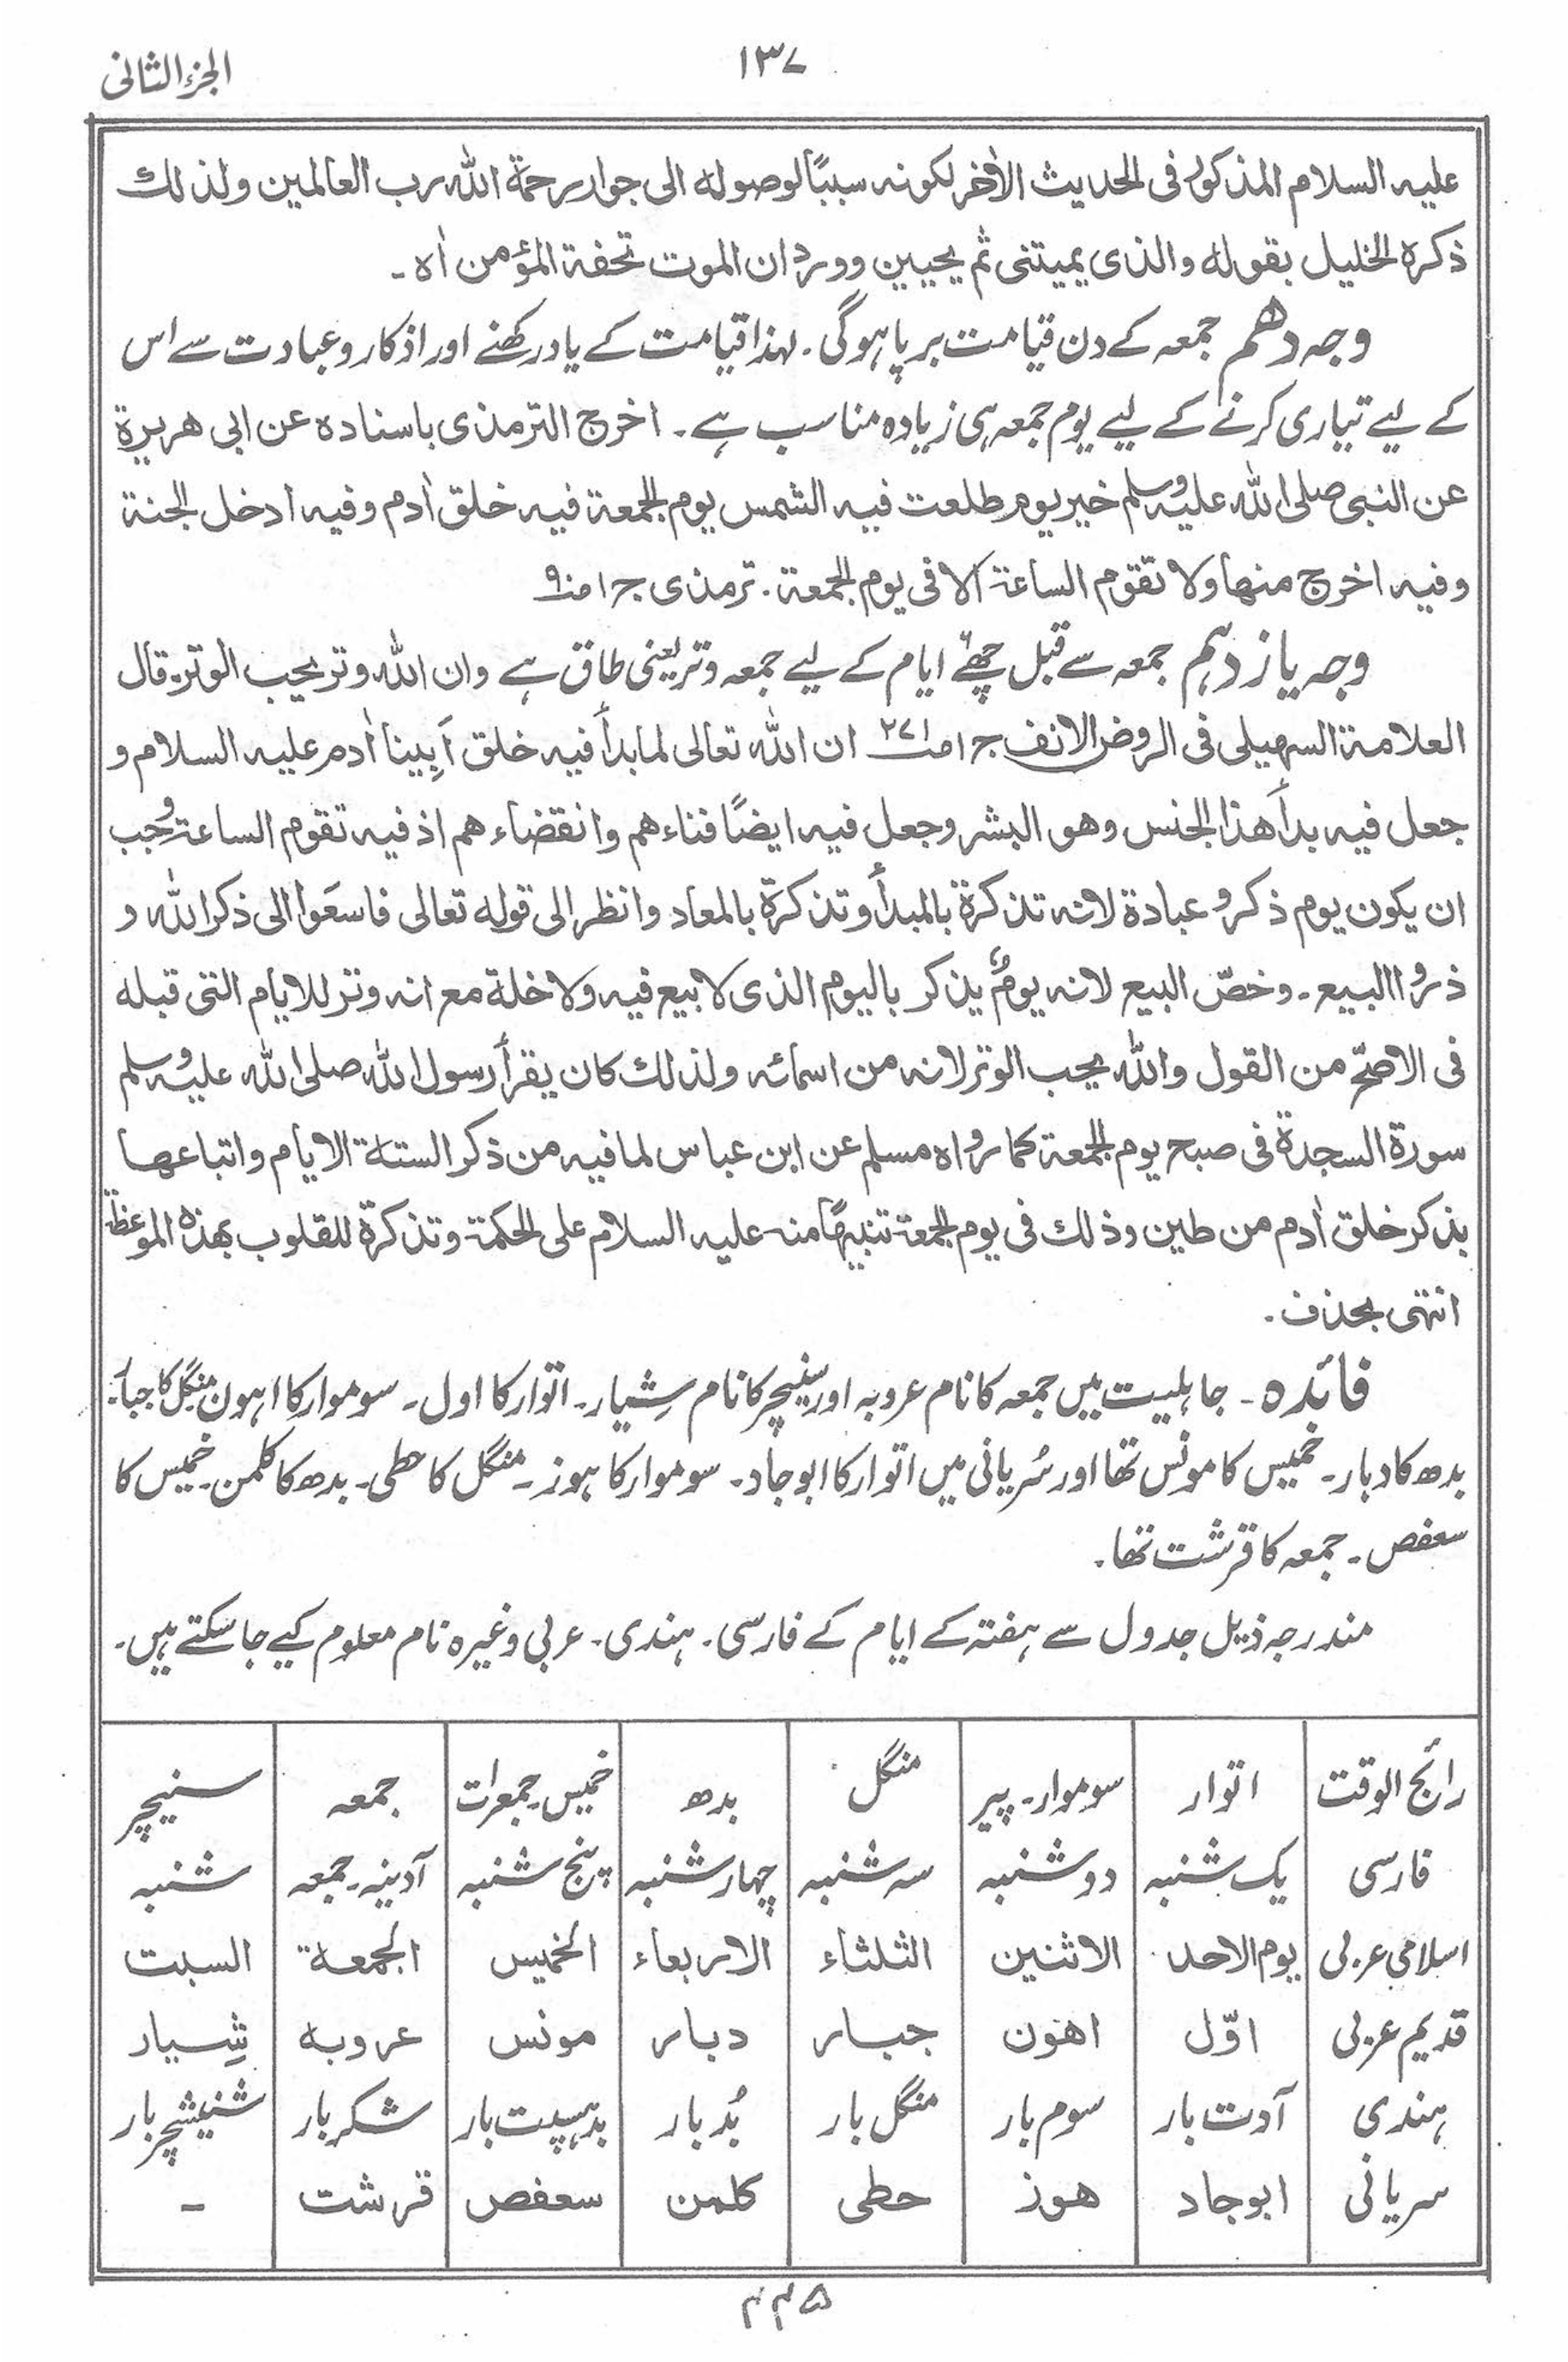 الجزء الثانی
۱۳۷
علیہ السلام المذکور فی الحدیث الاٰخر لکونہ سببًا لوصولہ الی جوار رحمۃ اللہ رب العالمین ولذلك
ذکرہ الخلیل بقولہ والذی یمیتنی ثم یحیین وورد ان الموت تحفۃ المؤمن اٰہ ۔
وجہ دھم جمعہ کے دن قیامت برپا ہوگی ۔ لہذا قیامت کے یاد رکھنے اور اذکار و عبادت سے اس
کے لیے تیاری کرنے کے لیے یوم جمعہ ہی زیادہ مناسب ہے ۔ اخرج الترمذی باسنادہ عن ابی ھریرۃ
عن النبی صلی اللہ علیہ وسلم خیر یوم طلعت فیہ الشمس یوم الجمعۃ فیہ خلق اٰدم وفیہ ادخل الجنۃ
وفیہ اخرج منھا ولا تقوم الساعۃ الا فی یوم الجمعۃ ۔ ترمذی ج ۱
وجہ یازدہم جمعہ سے قبل چھٹے ایام کے لیے جمعہ وتر یعنی طاق ہے وان اللہ وتر یحب الوتر ۔ قال
العلامۃ السھیلی فی الروض الانف ج ۱ ص ۲۷۱ ان اللہ تعالی لما بدأ فیہ خلق اَبِینا اٰدم علیہ السلام و
جعل فیہ بدأ ھذا الجنس وھو البشر وجعل فیہ ایضًا فناءھم وانقضاءھم اذ فیہ تقوم الساعۃ وجب
ان یکون یوم ذکر و عبادۃ لانہ تذکرۃ بالمبدأ وتذکرۃ بالمعاد وانظر الی قولہ تعالی فاسعَوا الی ذکر اللہ و
ذروا البیع ۔ وخصّ البیع لانہ یومٌ یذکر بالیوم الذی لا بیع فیہ ولا خلۃ مع انہ وتر للایام التی قبلہ
فی الاصحّ من القول واللہ یحب الوتر لانہ من اسمائہ ولذلك کان یقرأ رسول اللہ صلی اللہ علیہ وسلم
سورۃ السجدۃ فی صبح یوم الجمعۃ کما رواہ مسلم عن ابن عباس لما فیہ من ذکر الستۃ الایام واتباعھا
بذکر خلق اٰدم من طین وذلك فی یوم الجمعۃ تنبیھًا منہ علیہ السلام علی الحکمۃ وتذکرۃ للقلوب بھذہ الموعظۃ
انتھی بحذف ۔
فائدہ ۔ جاہلیت میں جمعہ کا نام عروبہ اور سنیچر کا نام شِیار ۔ اتوار کا اول ۔ سوموار کا اہون منگل کا جبار ۔
بدھ کا دبار ۔ خمیس کا مونس تھا اور سُریانی میں اتوار کا ابوجاد ۔ سوموار کا ہوز ۔ منگل کا حطی ۔ بدھ کا کلمن ۔ خمیس کا
سعفص ۔ جمعہ کا قرشت تھا ۔
مندرجہ ذیل جدول سے ہفتہ کے ایام کے فارسی ۔ ہندی ۔ عربی وغیرہ نام معلوم کیے جاسکتے ہیں ۔
رائج الوقت اتوار سوموار ۔ پیر منگل بدھ خمیس ۔ جمعرات جمعہ سنیچر
فارسی یک شنبہ دوشنبہ سہ شنبہ چہار شنبہ پنج شنبہ آدینہ ۔ جمعہ شنبہ
اسلامی عربی یوم الاحد الاثنین الثلثاء الاربعاء الخمیس الجمعۃ السبت
قدیم عربی اوّل اھون جبار دبار مونس عروبہ شِیار
ہندی آدت بار سوم بار منگل بار بُد بار بدہسپت بار شکر بار شنیشچر بار
سریانی ابوجاد ھوز حطی کلمن سعفص قرشت ۔
۴۴۵